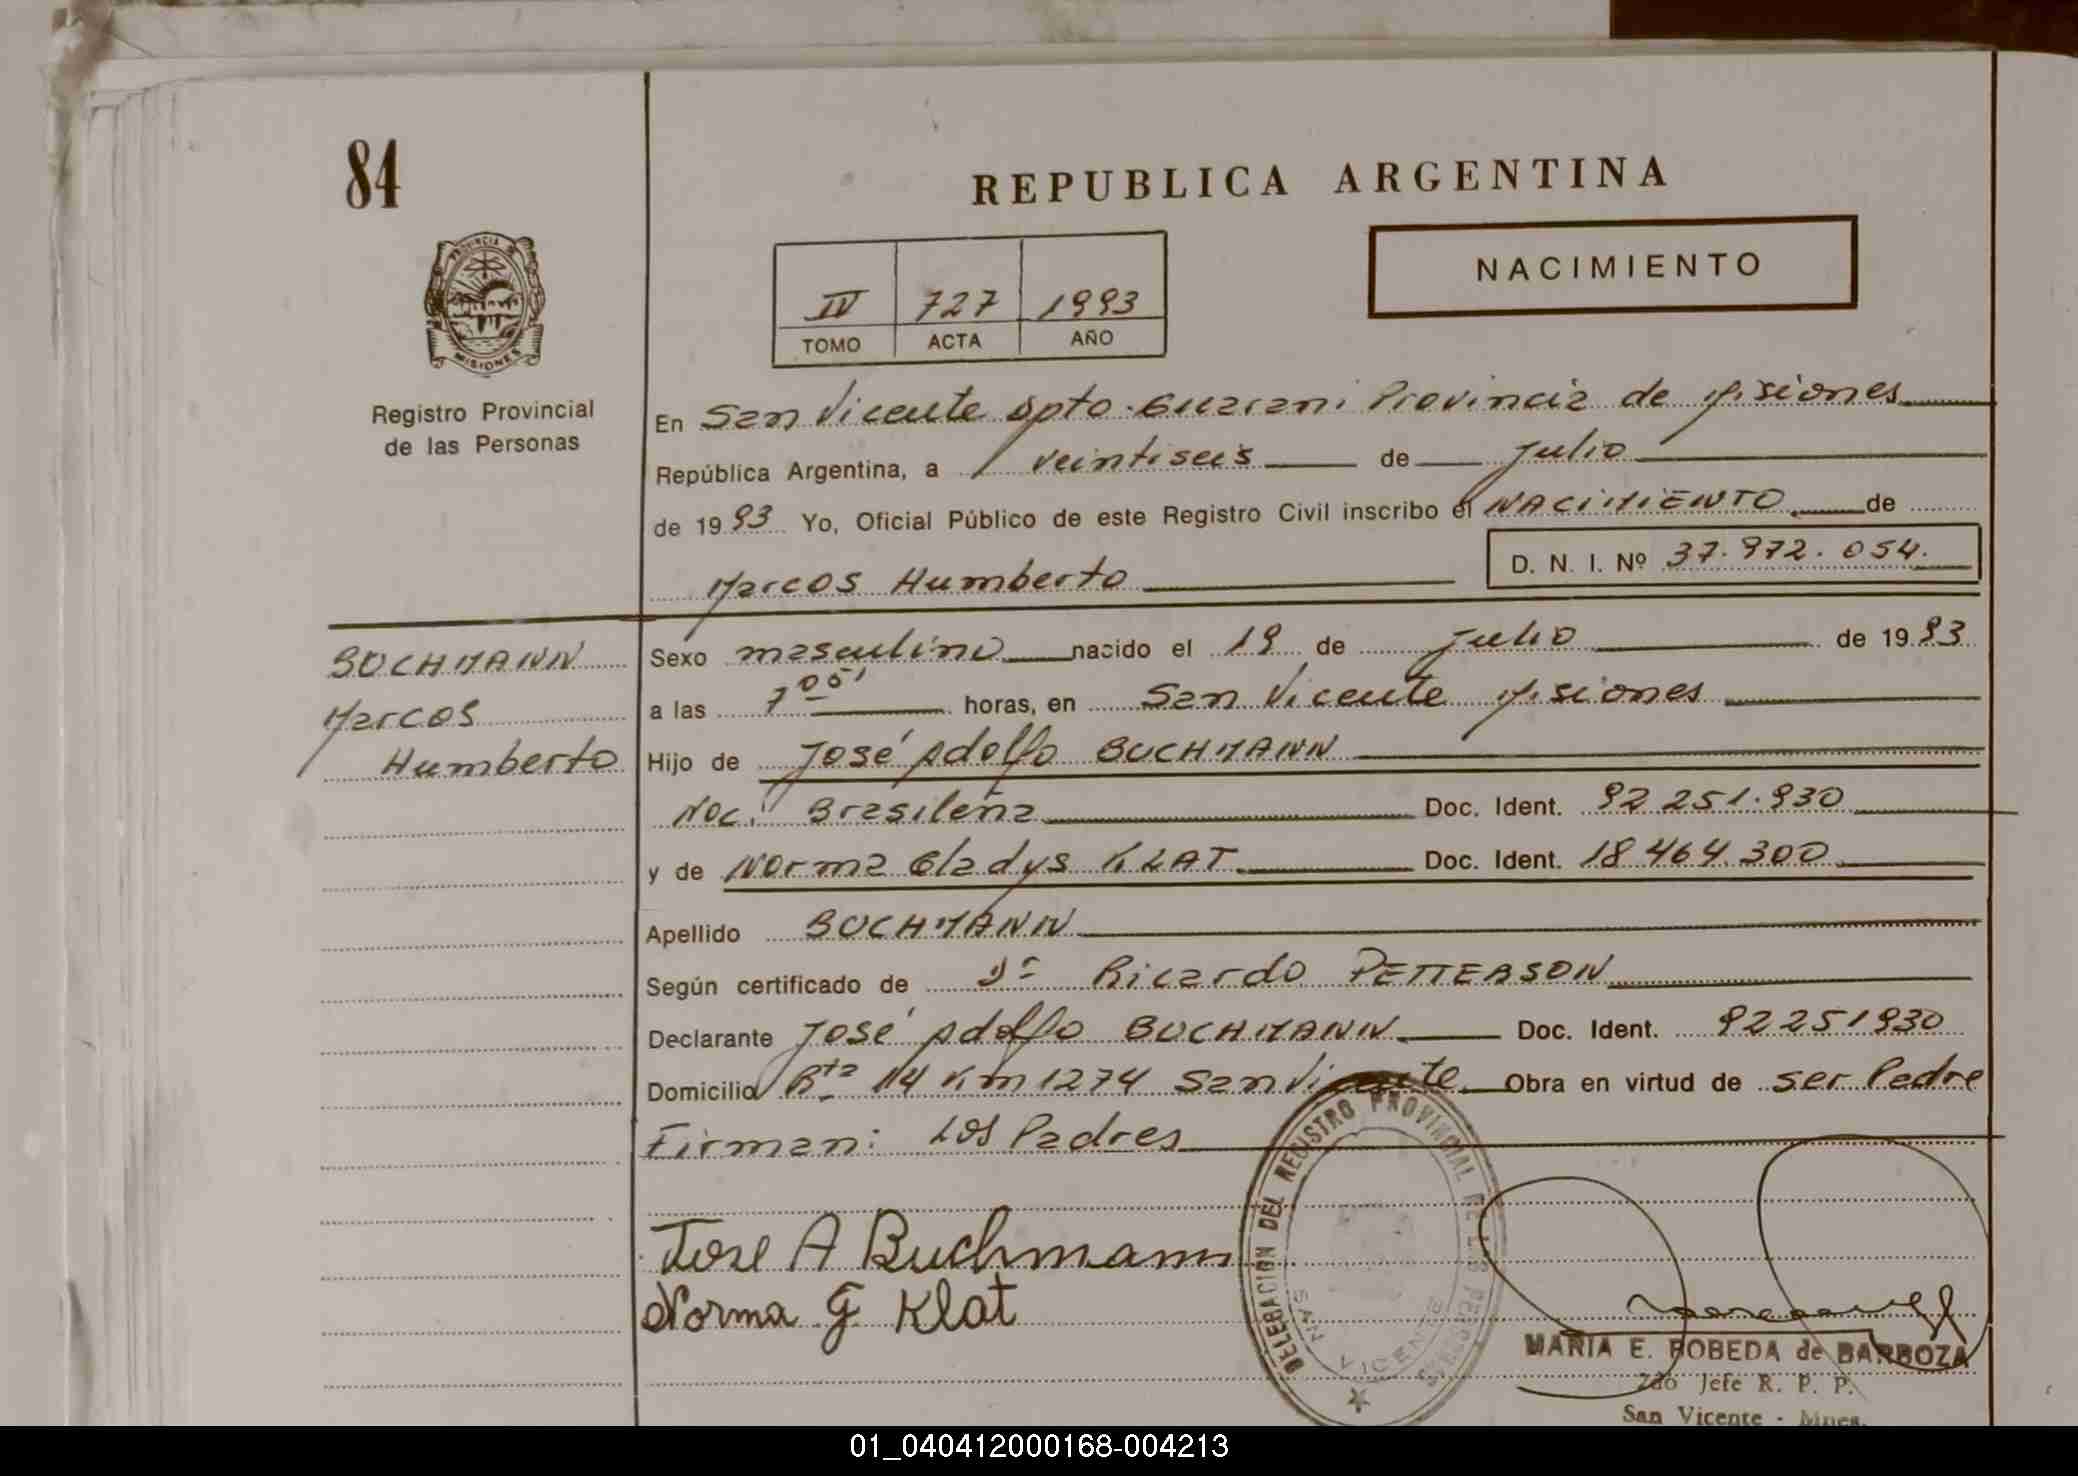 84
REPUBLICA ARGENTINA
NACIMIENTO
IV 727 1993
TOMO ACTA AÑO
PROVINCIA DE
MISIONES
Registro Provincial
de las Personas
En San Vicente Dpto. Guarani Provincia de Misiones
República Argentina, a veintiseis de Julio
de 1993 Yo, Oficial Público de este Registro Civil inscribo el NACIMIENTO de
D. N. I. Nº 37.972.054.
Marcos Humberto
BUCHMANN
Marcos
Humberto
Sexo masculino nacido el 19 de Julio de 1993
a las 7 05' horas, en San Vicente Misiones
Hijo de José Adolfo BUCHMANN
Nac. Brasileña Doc. Ident. 92 251.930
y de Norma Gladys KLAT Doc. Ident. 18 464 300
Apellido BUCHMANN
Según certificado de Dr Ricardo PETTERSON
Declarante José Adolfo BUCHMANN Doc. Ident. 92251930
Domicilio Rta 14 Km 1274 San Vicente Obra en virtud de ser Padre
Firman: Los Padres
Jose A Buchmann
Norma G Klat
DELEGACION DEL REGISTRO PROVINCIAL DE LAS PERSONAS
SAN VICENTE
MARIA E. POBEDA de BARBOZA
2do Jefe R. P. P.
San Vicente - Mnes.
01_040412000168-004213